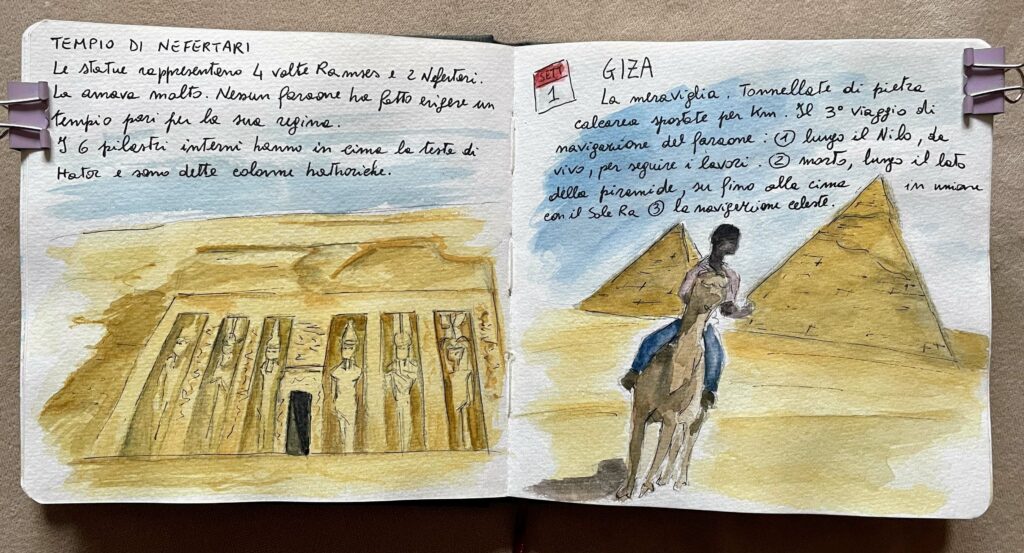 TEMPIO DI NEFERTARI
Le statue rappresentano 4 volte Ramses e 2 Nefertari.
La amava molto. Nessun faraone ha fatto erigere un
tempio pari per la sua regina.
I 6 pilastri interni hanno in cima la teste di
Hator e sono dette colonne hathoriche.
SETT
1
GIZA
La meraviglia. Tonnellate di pietra
calcarea spostate per Km. Il 3° viaggio di
navigazione del faraone: ① lungo il Nilo, da
vivo, per seguire i lavori. ② morto, lungo il lato
della piramide, su fino alla cima in unione
con il Sole Ra ③ la navigazione celeste.